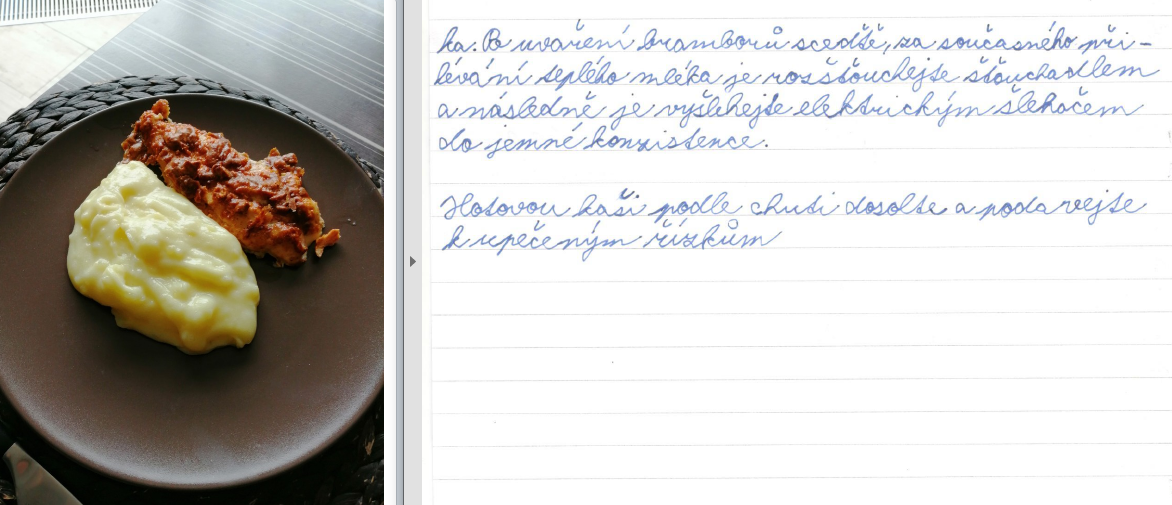 ka. Po uvaření bramborů sceďtě, za současného při-
lévání teplého mléka je rozšťouchejte šťouchadlem
a následně je vyšlehejte elektrickým šlehačem
do jemné konzistence.
Hotovou kaši podle chuti dosolte a podávejte
k upečeným řízkům